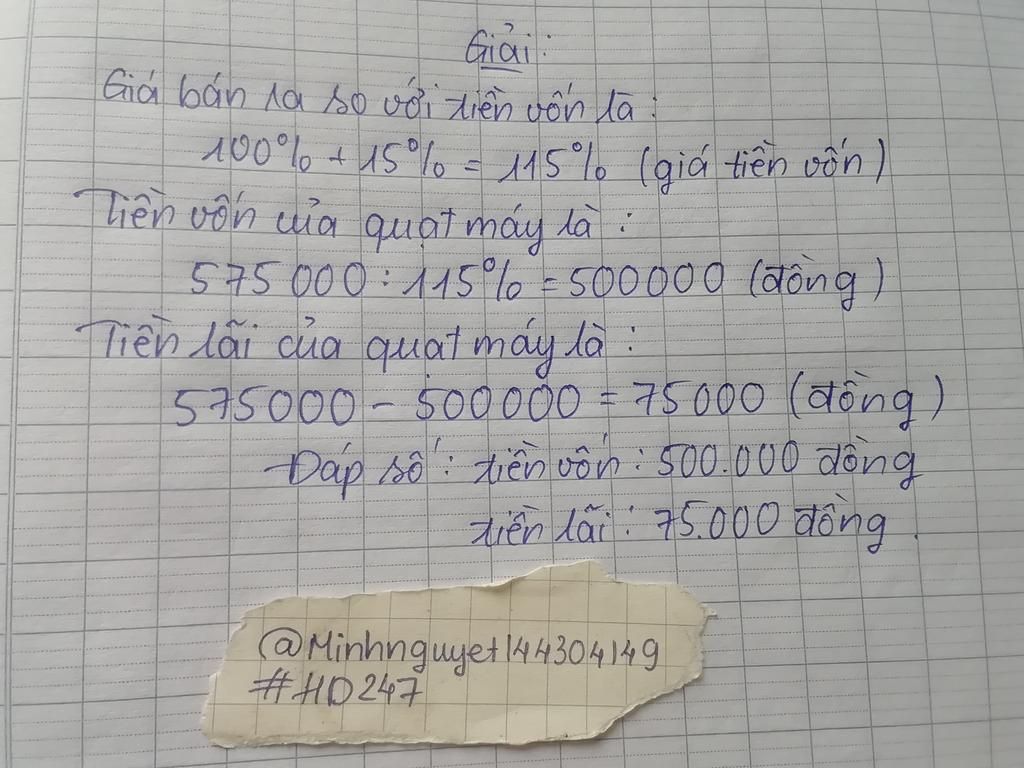 Giải:
Giá bán ra so với tiền vốn là:
100% + 15% = 115% (giá tiền vốn)
Tiền vốn của quạt máy là:
575 000 : 115% = 500000 (đồng)
Tiền lãi của quạt máy là:
575000 - 500000 = 75000 (đồng)
Đáp số: tiền vốn: 500.000 đồng
tiền lãi: 75.000 đồng.
@Minhnguyet144304149
#HD247